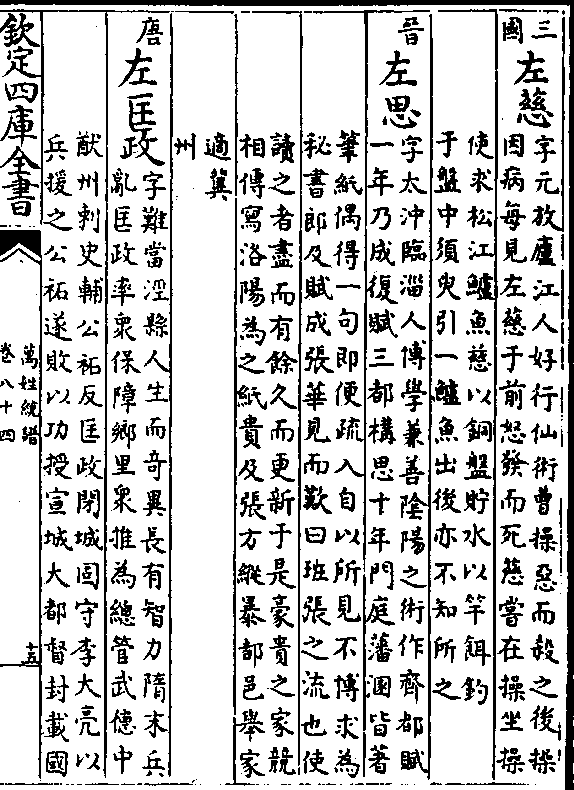 三國
左慈
字元放廬江人好行仙術曹操惡而殺之後操
因病每見左慈于前怒發而死慈嘗在操坐操
使求松江鱸魚慈以銅盤貯水以竿餌釣
于盤中須臾引一鱸魚出後亦不知所之
晉
左思
字太沖臨淄人博學兼善陰陽之術作齊都賦
一年乃成復賦三都構思十年門庭藩溷皆著
筆紙偶得一句即便疏入自以所見不博求為
秘書郎及賦成張華見而歎曰班張之流也使
讀之者盡而有餘久而更新于是豪貴之家競
相傳寫洛陽為之紙貴及張方縱暴都邑舉家
適冀
州
唐
左匡政
字難當涇縣人生而奇異長有智力隋末兵
亂匡政率衆保障鄉里衆推為總管武德中
猷州刺史輔公祏反匡政閉城固守李大亮以
兵援之公祏遂敗以功授宣城大都督封載國
欽定四庫全書
萬姓統譜
卷八十四
十五